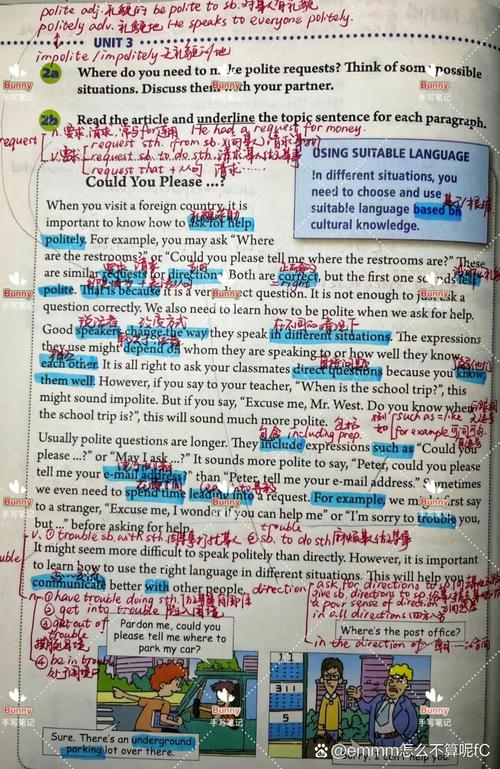 polite adj. 礼貌的 be polite to sb. 对某人有礼貌
politely adv. 礼貌地 He speaks to everyone politely.
UNIT 3
impolite / impolitely 无礼貌
2a Where do you need to make polite requests? Think of some possible
situations. Discuss them with your partner.
2b Read the article and underline the topic sentence for each paragraph.
request
n. 要求,请求 He had a request for money.
v. 要求 request sth. from sb.
request sb. to do sth. 请求某人做某事
request that + 从句 请求……
USING SUITABLE LANGUAGE
In different situations, you
need to choose and use
suitable language based on
cultural knowledge.
Could You Please ...?
When you visit a foreign country, it is
important to know how to ask for help
politely. For example, you may ask "Where
are the restrooms?" or "Could you please tell me where the restrooms are?" These
are similar requests for direction. Both are correct, but the first one sounds less
polite. That is because it is a very direct question. It is not enough to just ask a
question correctly. We also need to learn how to be polite when we ask for help.
Good speakers change the way they speak in different situations. The expressions
they use might depend on whom they are speaking to or how well they know
each other. It is all right to ask your classmates direct questions because you know
them well. However, if you say to your teacher, "When is the school trip?", this
might sound impolite. But if you say, "Excuse me, Mr. West. Do you know when
the school trip is?", this will sound much more polite.
such as = like
for example
包括 including prep.
Usually polite questions are longer. They include expressions such as "Could you
please ...?" or "May I ask ...?" It sounds more polite to say, "Peter, could you please
tell me your e-mail address?" than "Peter, tell me your e-mail address." Sometimes
we even need to spend time leading into a request. For example, we might first say
to a stranger, "Excuse me, I wonder if you can help me" or "I'm sorry to trouble you,
but ..." before asking for help.
trouble
v. ① trouble sb. with sth. ② sb. to do sth.
It might seem more difficult to speak politely than directly. However, it is important
to learn how to use the right language in different situations. This will help you
communicate better with other people.
direction
ask for directions to
give sb. directions to sp.
a poor sense of direction
in all directions 四面八方
in the direction of
n. ① have trouble doing sth.
② get into trouble
③ get out of
trouble
④ be in trouble
Pardon me, could you
please tell me where to
park my car?
Where's the post office?
Sure. There's an underground
parking lot over there.
Sorry, I can't help you.
311
5
Bunny
手写笔记
@emmm怎么不算呢fC